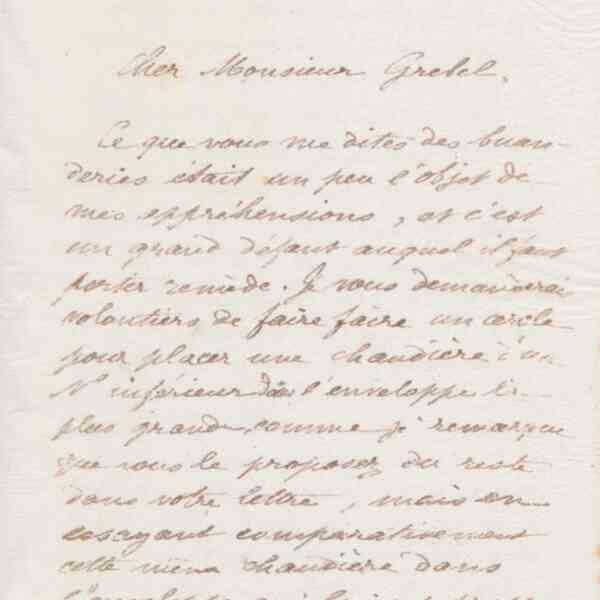 Cher Monsieur Grebel,
Ce que vous me dites des buan-
deries était un peu l'objet de
mes appréhensions, et c'est
un grand défaut auquel il faut
porter remède. Je vous demanderai
volontiers de faire faire un cercle
pour placer une chaudière d'un
N° inférieur dans l'enveloppe la
plus grande, comme je remarque
que vous le proposez du reste
dans votre lettre, mais en
essayant comparativement
cette même chaudière dans
l'enveloppe